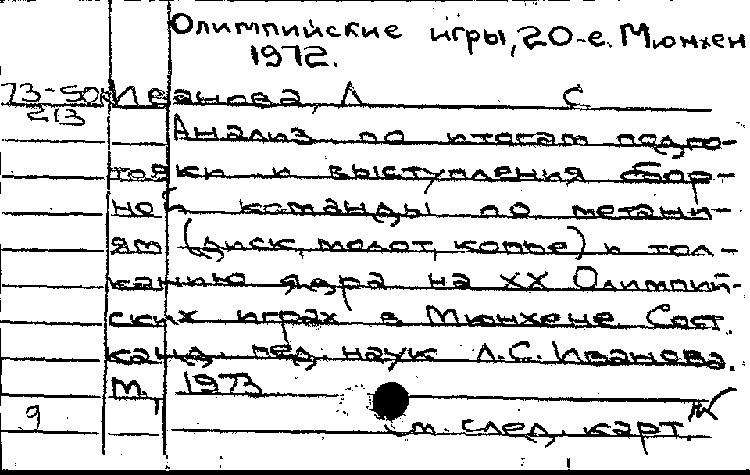 Олимпийские игры, 20-е. Мюнхен
1972.
73-50к Иванова, Л С
213
Анализ по итогам подго-
товки и выступления сбор-
ной команды по метани-
ям (диск, молот, копье) и тол-
канию ядра на XX Олимпий-
ских играх в Мюнхене. Сост.
канд. пед. наук Л.С. Иванова.
М., 1973
9
См. след. карт.